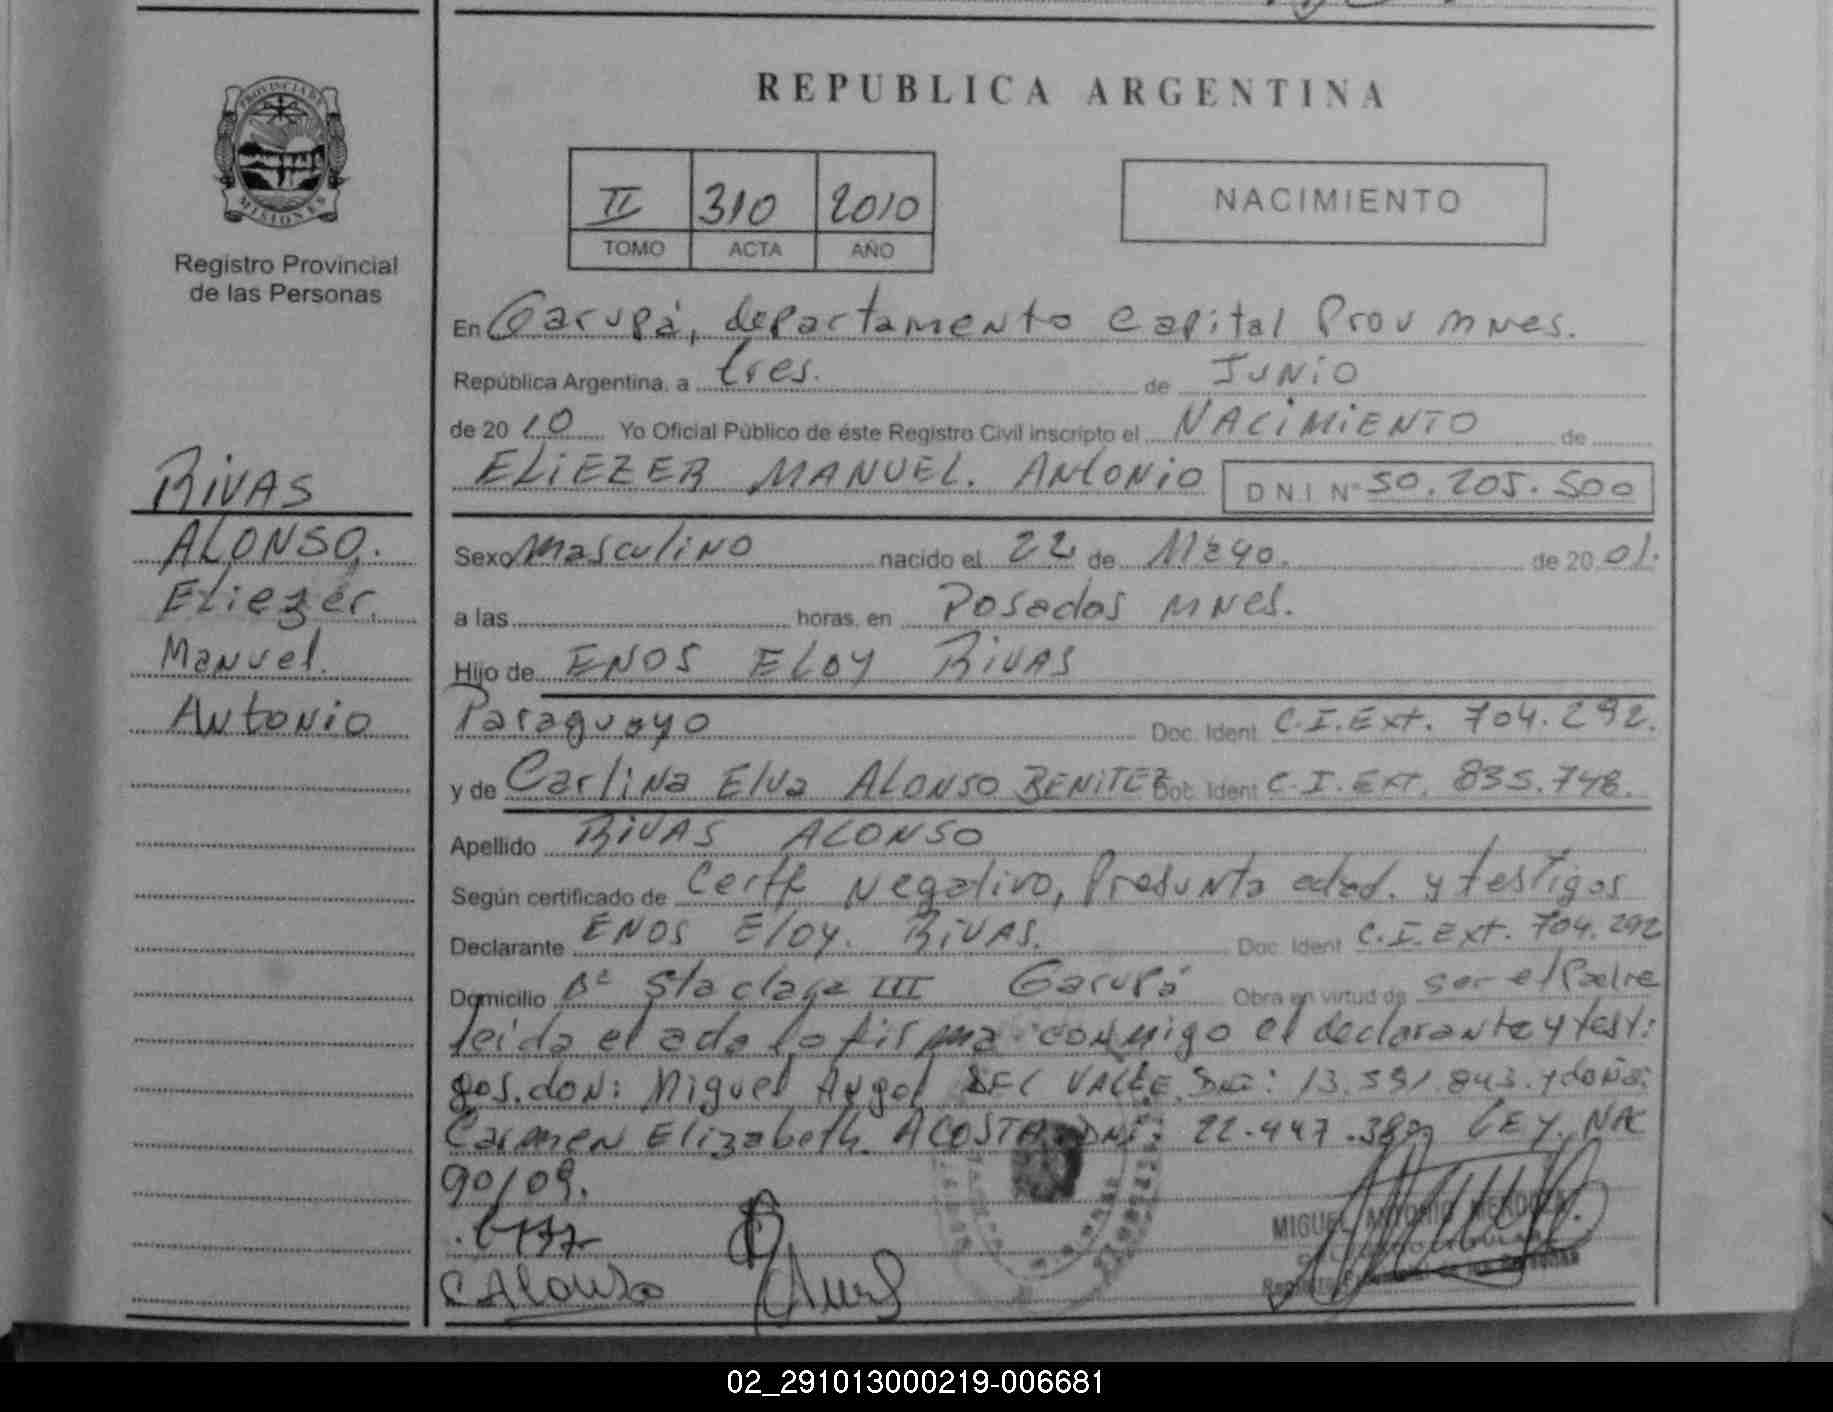 REPUBLICA ARGENTINA
PROVINCIA DE
MISIONES
Registro Provincial
de las Personas
II 310 2010
TOMO ACTA AÑO
NACIMIENTO
En Garupá, departamento Capital Prov mnes.
República Argentina, a tres. de Junio
de 2010 Yo Oficial Público de éste Registro Civil inscripto el NACIMIENTO de
ELIEZER MANUEL. ANTONIO DNI Nº 50.205.500
RIVAS
ALONSO.
Eliezer.
Manuel.
Antonio
Sexo Masculino nacido el 22 de Mayo. de 2001.
a las horas, en Posadas mnes.
Hijo de ENOS ELOY RIVAS
Paraguayo Doc. Ident C.I.Ext. 704.292.
y de Carlina Elva ALONSO BENITEZ Doc. Ident C.I. Ext. 835.748.
Apellido RIVAS ALONSO
Según certificado de Certf Negativo, Presunta edad. y testigos
Declarante ENOS Eloy. RIVAS. Doc. Ident C.I. Ext. 704.292
Domicilio Bº Sta clara III Garupá Obra en virtud de ser el Padre
leida el acta la firma conmigo el declarante y testi
gos. don: Miguel Angel DEL VALLE DNI: 13.591.843. y doña:
Carmen Elizabeth ACOSTA DNI: 22.447.389 LEY. NAC
90/09.
C Alonso
MIGUEL ANTONIO MENDOZA
02_291013000219-006681